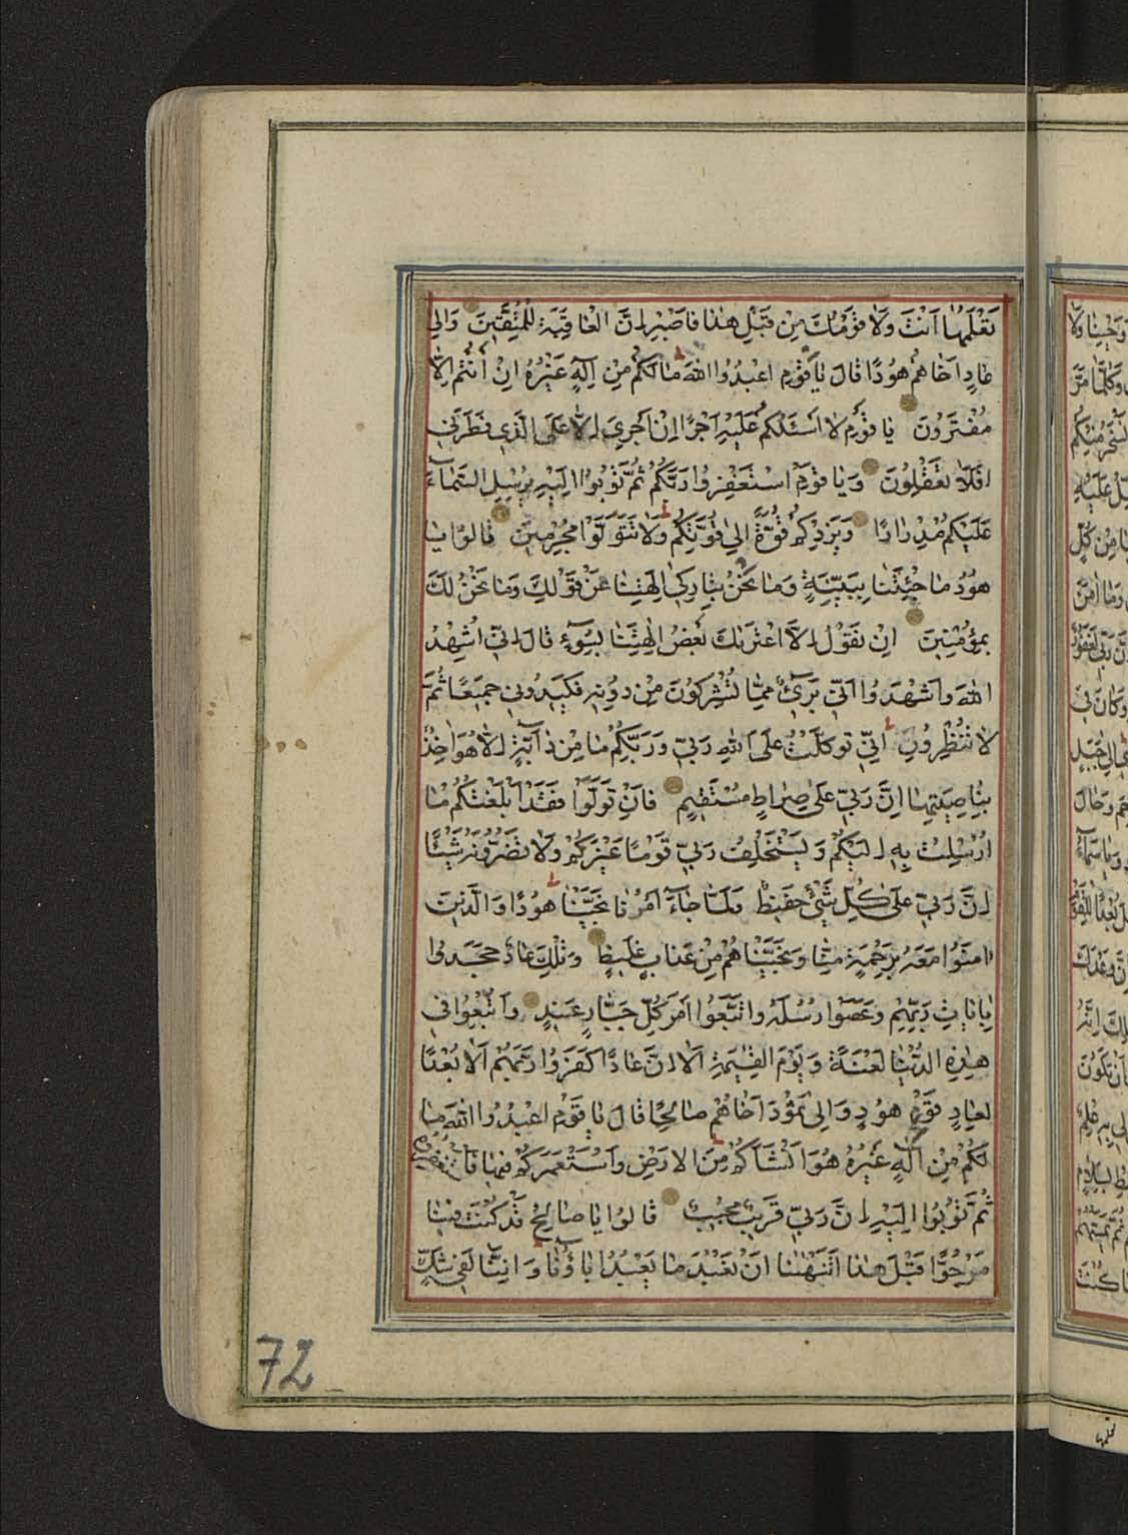 تَعْلَمُهَا اَنْتَ وَلَا قَوْمُكَ مِنْ قَبْلِ هٰذَا فَاصْبِرْ اِنَّ الْعَاقِبَةَ لِلْمُتَّقِيْنَ وَاِلٰى
عَادٍ اَخَاهُمْ هُودًا قَالَ يَا قَوْمِ اعْبُدُوا اللهَ مَا لَكُمْ مِنْ اِلٰهٍ غَيْرُهُ اِنْ اَنْتُمْ اِلَّا
مُفْتَرُونَ يَا قَوْمِ لَا اَسْئَلُكُمْ عَلَيْهِ اَجْرًا اِنْ اَجْرِيَ اِلَّا عَلَى الَّذِي فَطَرَنِي
اَفَلَا تَعْقِلُونَ وَيَا قَوْمِ اسْتَغْفِرُوا رَبَّكُمْ ثُمَّ تُوبُوا اِلَيْهِ يُرْسِلِ السَّمَاءَ
عَلَيْكُمْ مِدْرَارًا وَيَزِدْكُمْ قُوَّةً اِلٰى قُوَّتِكُمْ وَلَا تَتَوَلَّوْا مُجْرِمِينَ قَالُوا يَا
هُودُ مَا جِئْتَنَا بِبَيِّنَةٍ وَمَا نَحْنُ بِتَارِكِي اٰلِهَتِنَا عَنْ قَوْلِكَ وَمَا نَحْنُ لَكَ
بِمُؤْمِنِينَ اِنْ نَقُولُ اِلَّا اعْتَرٰيكَ بَعْضُ اٰلِهَتِنَا بِسُوءٍ قَالَ اِنِّي اُشْهِدُ
اللهَ وَاشْهَدُوا اَنِّي بَرِيءٌ مِمَّا تُشْرِكُونَ مِنْ دُونِهِ فَكِيدُونِي جَمِيعًا ثُمَّ
لَا تُنْظِرُونِ اِنِّي تَوَكَّلْتُ عَلَى اللهِ رَبِّي وَرَبِّكُمْ مَا مِنْ دَابَّةٍ اِلَّا هُوَ اٰخِذٌ
بِنَاصِيَتِهَا اِنَّ رَبِّي عَلٰى صِرَاطٍ مُسْتَقِيمٍ فَاِنْ تَوَلَّوْا فَقَدْ اَبْلَغْتُكُمْ مَا
اُرْسِلْتُ بِهِ اِلَيْكُمْ وَيَسْتَخْلِفُ رَبِّي قَوْمًا غَيْرَكُمْ وَلَا تَضُرُّونَهُ شَيْئًا
اِنَّ رَبِّي عَلٰى كُلِّ شَيْءٍ حَفِيظٌ وَلَمَّا جَاءَ اَمْرُنَا نَجَّيْنَا هُودًا وَالَّذِينَ
اٰمَنُوا مَعَهُ بِرَحْمَةٍ مِنَّا وَنَجَّيْنَاهُمْ مِنْ عَذَابٍ غَلِيظٍ وَتِلْكَ عَادٌ جَحَدُوا
بِاٰيَاتِ رَبِّهِمْ وَعَصَوْا رُسُلَهُ وَاتَّبَعُوا اَمْرَ كُلِّ جَبَّارٍ عَنِيدٍ وَاُتْبِعُوا فِي
هٰذِهِ الدُّنْيَا لَعْنَةً وَيَوْمَ الْقِيٰمَةِ اَلَا اِنَّ عَادًا كَفَرُوا رَبَّهُمْ اَلَا بُعْدًا
لِعَادٍ قَوْمِ هُودٍ وَاِلٰى ثَمُودَ اَخَاهُمْ صَالِحًا قَالَ يَا قَوْمِ اعْبُدُوا اللهَ مَا
لَكُمْ مِنْ اِلٰهٍ غَيْرُهُ هُوَ اَنْشَأَكُمْ مِنَ الْاَرْضِ وَاسْتَعْمَرَكُمْ فِيهَا فَاسْتَغْفِرُوهُ
ثُمَّ تُوبُوا اِلَيْهِ اِنَّ رَبِّي قَرِيبٌ مُجِيبٌ قَالُوا يَا صَالِحُ قَدْ كُنْتَ فِينَا
مَرْجُوًّا قَبْلَ هٰذَا اَتَنْهٰنَا اَنْ نَعْبُدَ مَا يَعْبُدُ اٰبَاؤُنَا وَاِنَّنَا لَفِي شَكٍّ
72